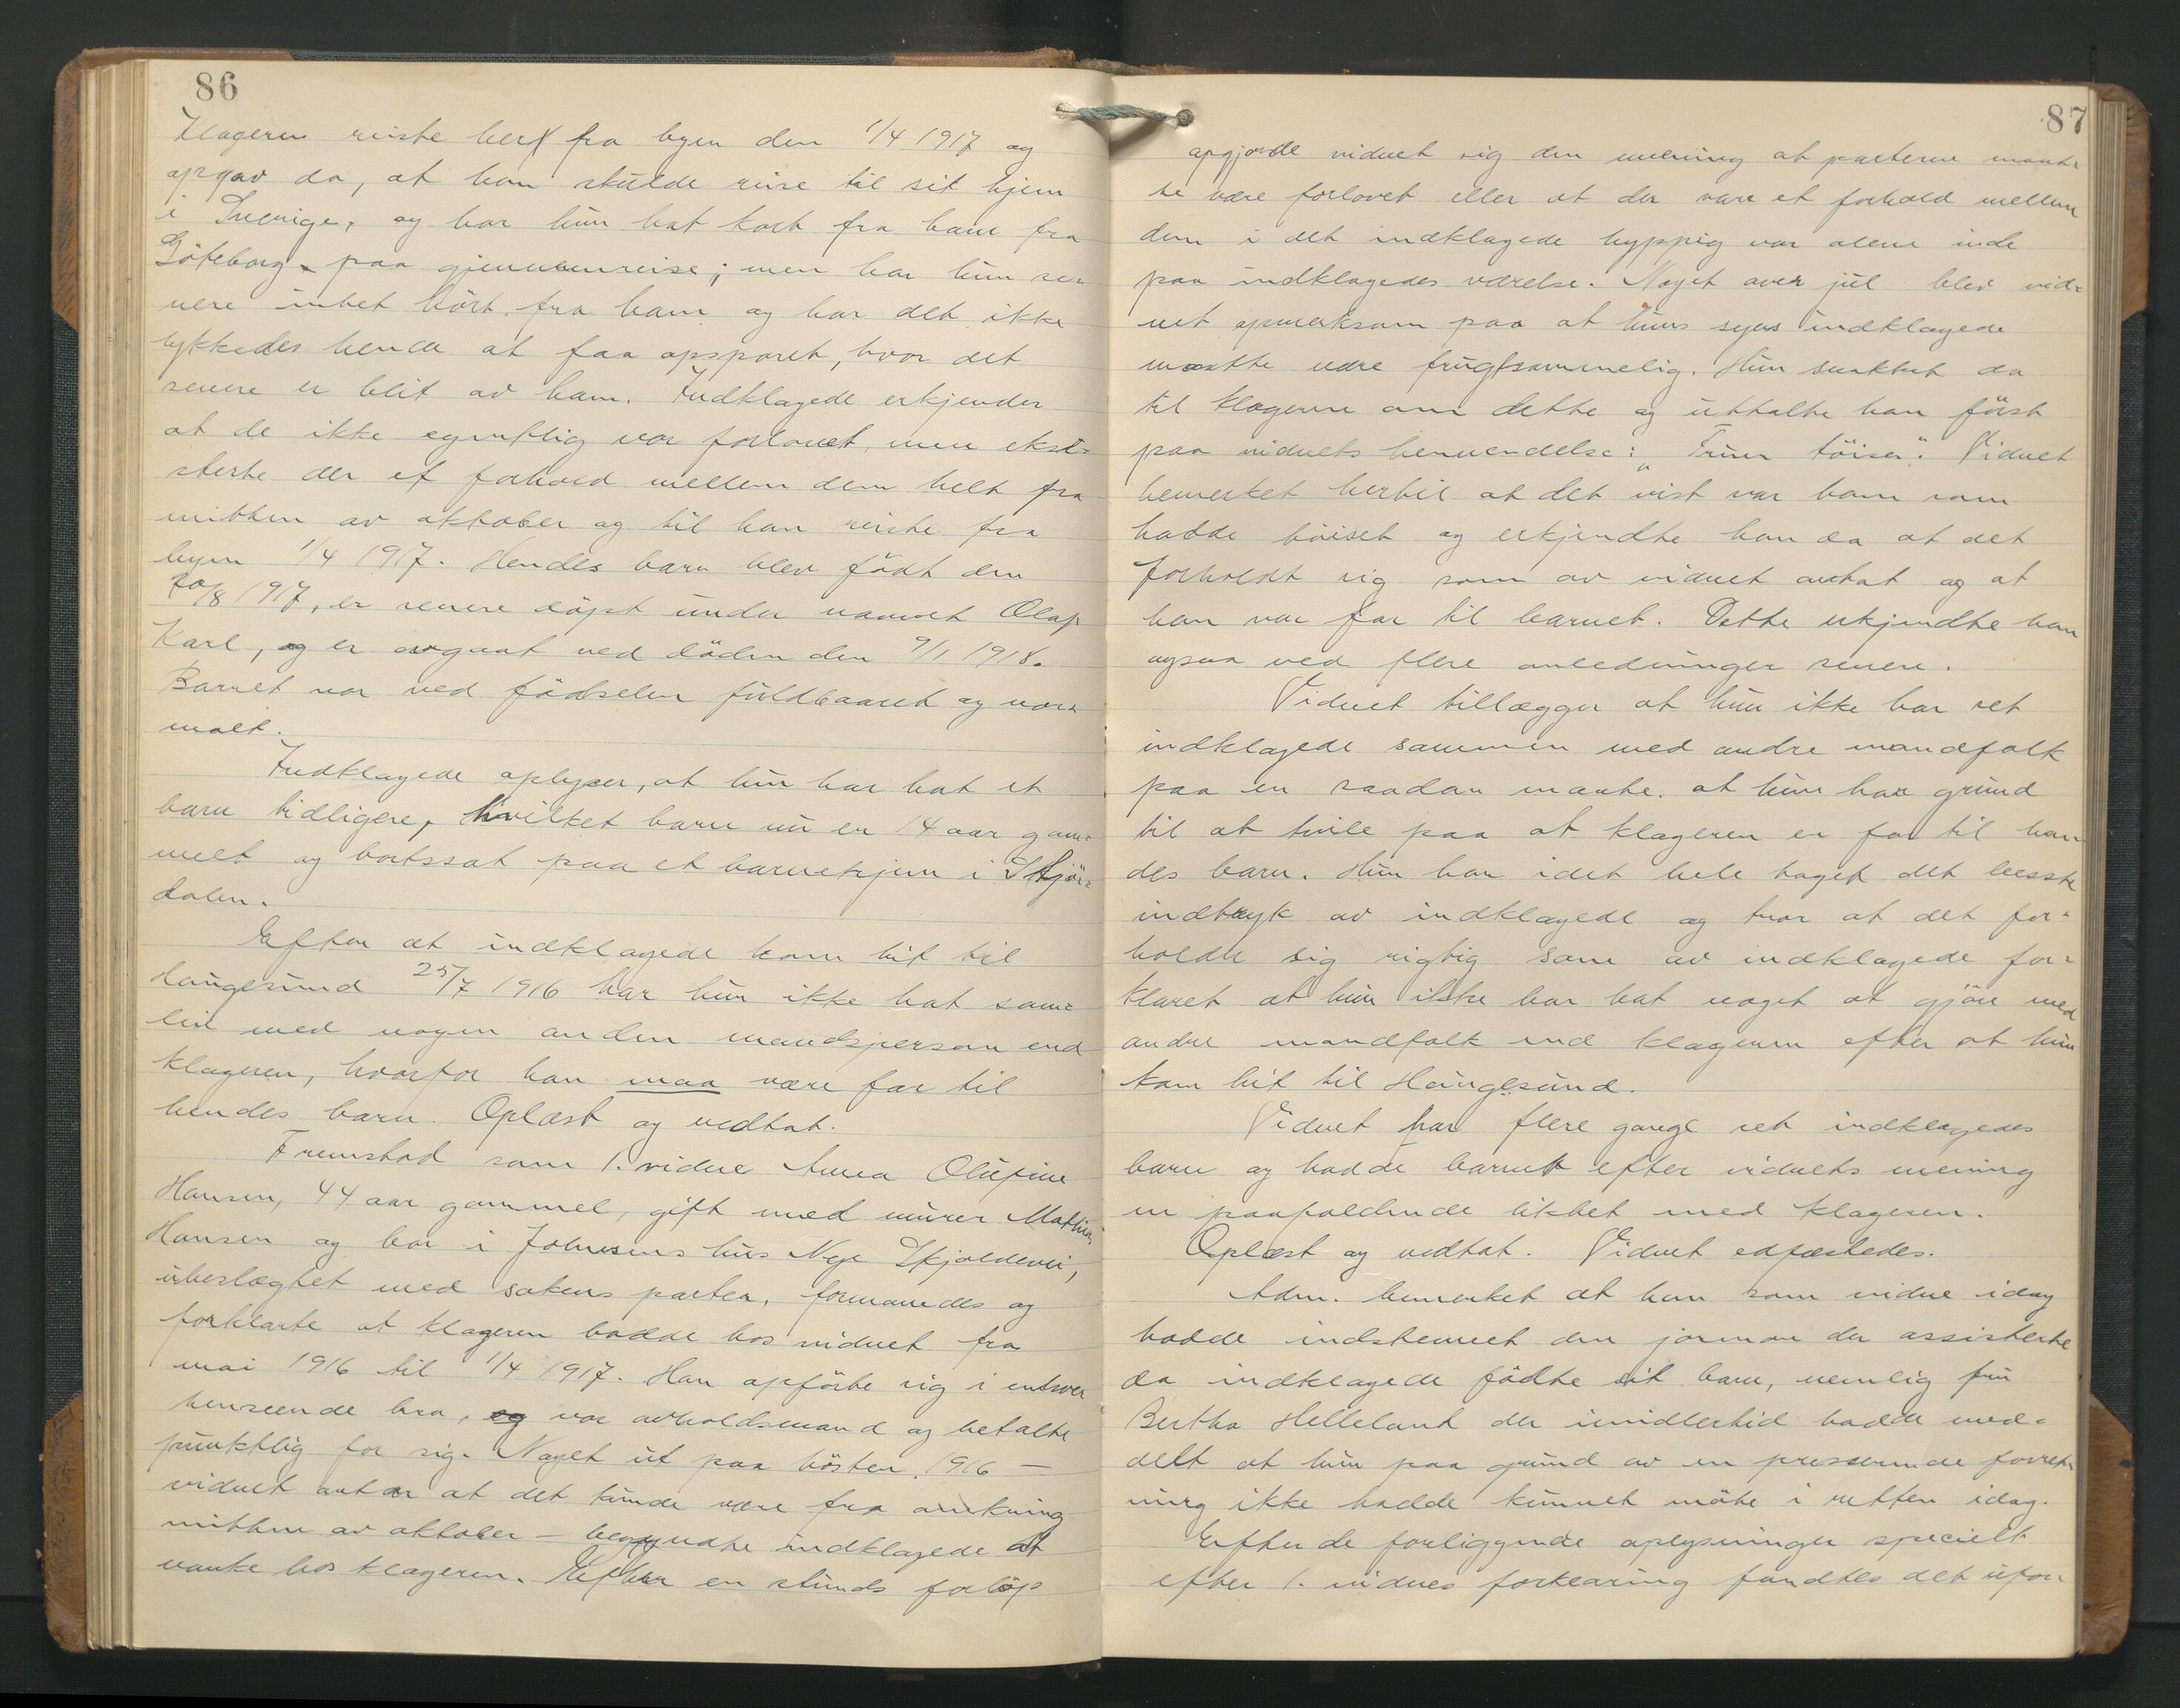 86
Klageren reiste her fra byen den 1/4 1917 og
opgav da, at han skulde reise til sit hjem
i Sverige, og har hun hat kort fra ham fra
Göteborg paa gjennemreise; men har hun se-
nere intet hört fra ham og har det ikke
lykkedes hende at faa opsporet, hvor det
senere er blit av ham. Indklagede erkjender
at de ikke egentlig var forlovet, men eksi-
sterte der et forhold mellem dem helt fra
mitten av oktober og til han reiste fra
byen 1/4 1917. Hendes barn blev födt den
20/8 1917, er senere döpt under navnet Olaf
Karl, og er avgaat ved döden den 9/1 1918.
Barnet var ved födselen fuldbaaret og nor-
malt.
Indklagede oplyser, at hun har hat et
barn tidligere, hvilket barn nu er 14 aar gam-
melt og bortssat paa et barnehjem i Stjör-
dalen.
Efter at indklagede kom hit til
Haugesund 25/7 1916 har hun ikke hat sam-
leie med nogen anden mandsperson end
klageren, hvorfor han maa være far til
hendes barn. Oplæst og vedtat.
Fremstod som 1. vidne Anna Olufine
Hansen, 44 aar gammel, gift med murer Mathias
Hansen og bor i Johnsens hus Nye Skjoldevei,
ubeslægtet med sakens parter, formanedes og
forklarte at klageren bodde hos vidnet fra
mai 1916 til 1/4 1917. Han opförte sig i enhver
henseende bra, og var avholdsmand og betalte
punktlig for sig. Noget ut paa hösten 1916 -
vidnet antar at det kunde være fra omkring
mitten av oktober - begyndte indklagede at
vanke hos klageren. Efter en stunds forlöp
87
opgjorde vidnet sig den mening at parterne maat-
te være forlovet eller at der var et forhold mellem
dem i det indklagede hyppig var alene inde
paa indklagedes værelse. Noget over jul blev vid-
net opmerksom paa at hun syns indklagede
maatte være frugtsommelig. Hun snakket da
til klageren om dette og uttalte han först
paa vidnets henvendelse: „Trur töisa". Vidnet
bemerket hertil at det vist var ham som
hadde töiset og erkjendte han da at det
forholdt sig som av vidnet antat og at
han var far til barnet. Dette erkjendte han
ogsaa ved flere anledninger senere.
Vidnet tillægger at hun ikke har set
indklagede sammen med andre mandfolk
paa en saadan maate at hun har grund
til at tvile paa at klageren er far til hen-
des barn. Hun har idet hele taget det beste
indtryk av indklagede og tror at det for-
holder sig rigtig som av indklagede for-
klaret at hun ikke har hat noget at gjöre med
andre mandfolk end klageren efter at hun
kom hit til Haugesund.
Vidnet har flere gange set indklagedes
barn og hadde barnet efter vidnets mening
en paafaldende likhet med klageren.
Oplæst og vedtat. Vidnet edfæstedes.
Adm. bemerket at han som vidne idag
hadde indstevnet den jormor der assisterte
da indklagede födte sit barn, nemlig fru
Bertha Helleland der imidlertid hadde med-
delt at hun paa grund av en presserende forret-
ning ikke hadde kunnet möte i retten idag.
Efter de foreliggende oplysninger specielt
efter 1. vidnes forklaring fandtes det ufor-